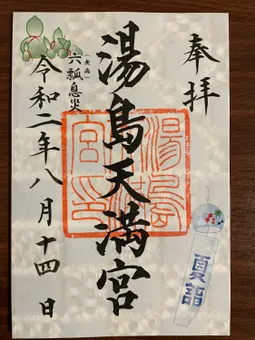 奉拝
湯島天満宮
(無病)
六瓢息災
令和二年八月十四日
夏詣